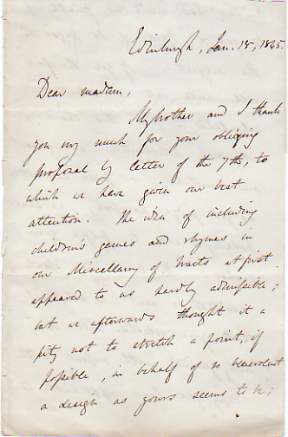 Edinburgh, Jan. 18, 1845.
Dear madam,
My brother and I thank
you very much for your obliging
proposal by letter of the 7th, to
which we have given our best
attention. The idea of including
childrens games and rhymes in
our Miscellany of Tracts at first
appeared to us hardly admissible;
but we afterwards thought it a
pity not to stretch a point, if
possible, in behalf of so benevolent
a design as yours seems to be;